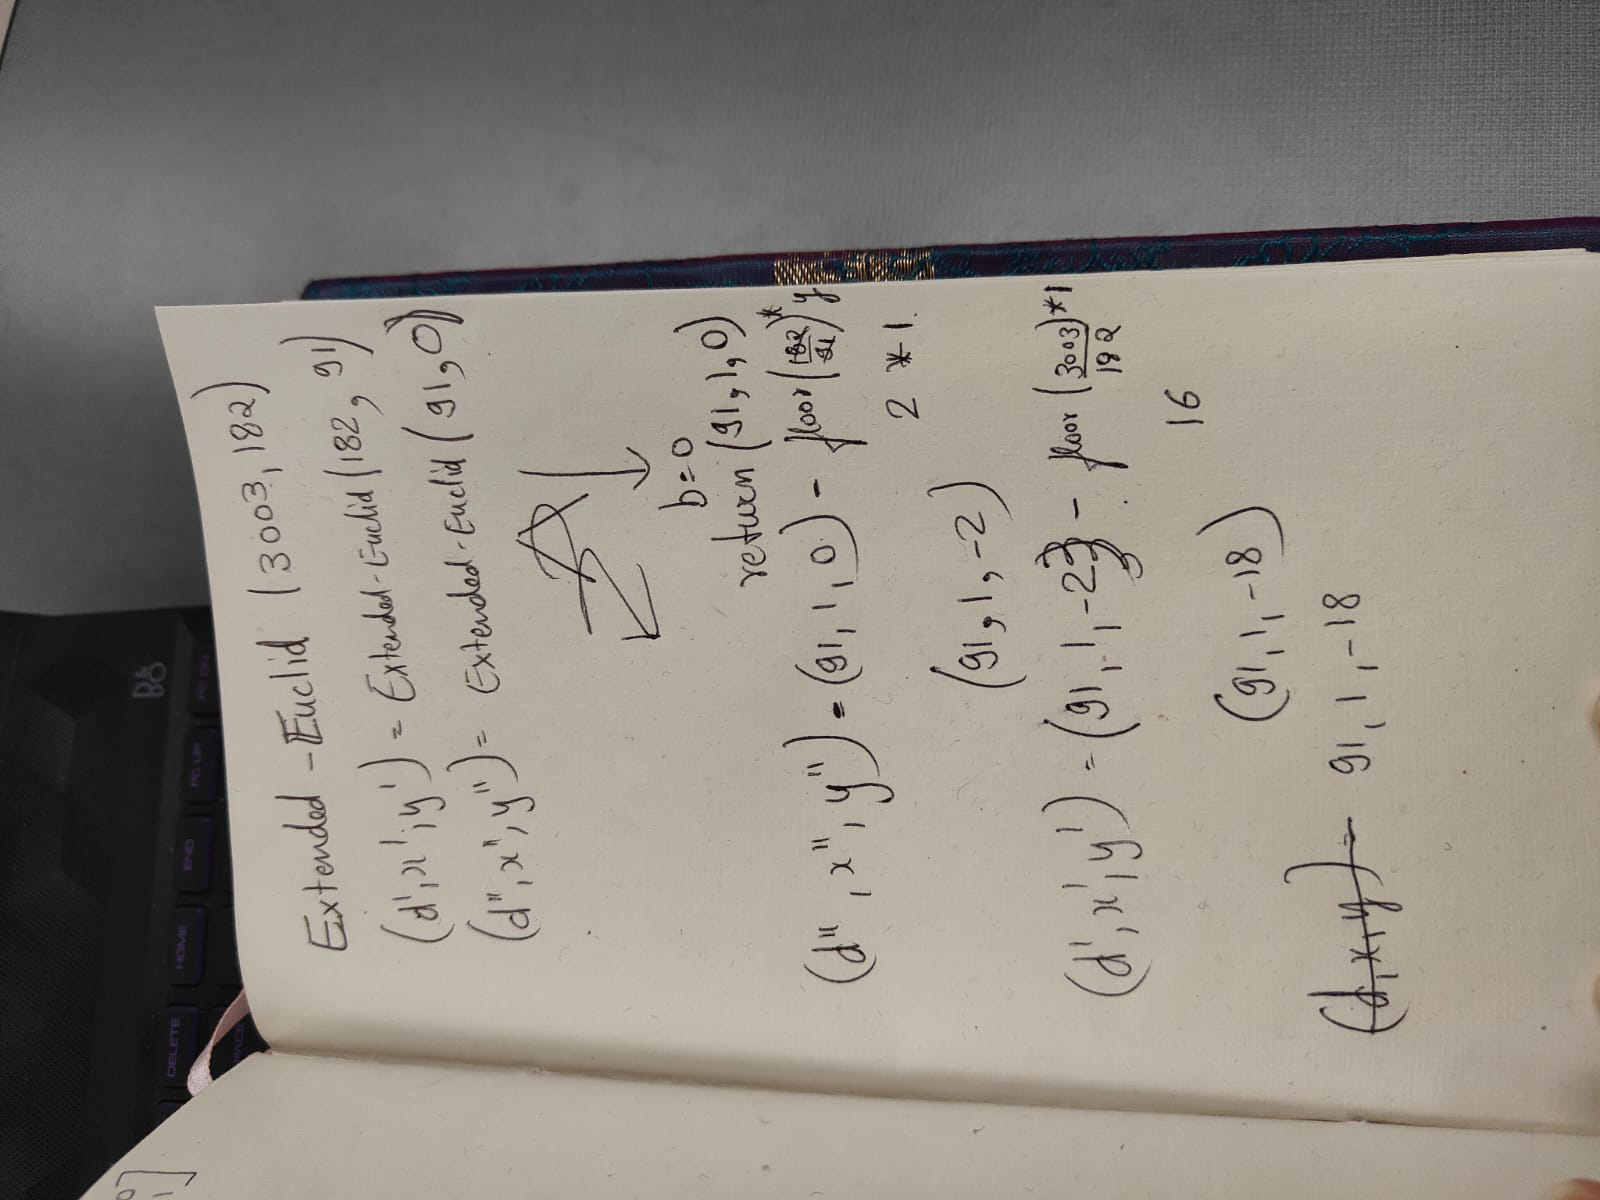 Extended-Euclid (3003, 182)
(d', x', y') = Extended-Euclid (182, 91)
(d'', x'', y'') = Extended-Euclid (91, 0)
b=0
return (91, 1, 0)
(d'', x'', y'') = (91, 1, 0) - floor (182/91) * y
2 * 1
(91, 1, -2)
(d', x', y') = (91, 1, -2) - floor (3003/182) * 1
16
(91, 1, -18)
(d, x, y) = 91, 1, -18
B&O
DELETE
HOME
END
PG UP
PG DN